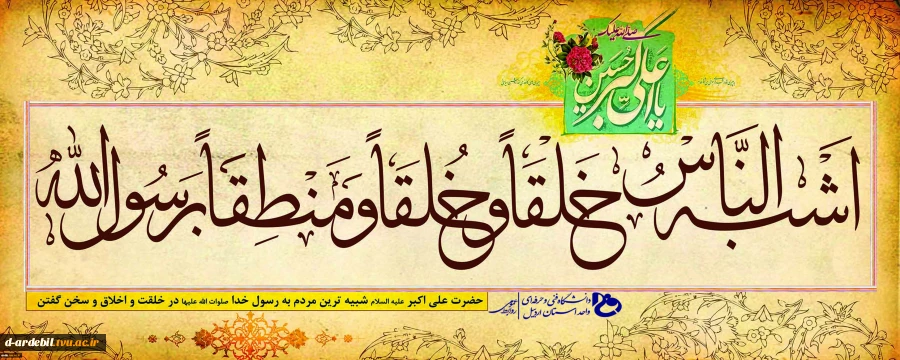 یا علی اکبر حسین
صلی الله علیک
اشبه النَّاسُ خَلْقَاً وَ خُلقَاً وَ مَنْطِقَاً بَرَسُولِ اللهُ
حضرت علی اکبر علیه السلام شبیه ترین مردم به رسول خدا صلوات الله علیها در خلقت و اخلاق و سخن گفتن
دانشگاه فنی و حرفه‌ای
واحد استان اردبیل
d-ardebil.tvu.ac.ir